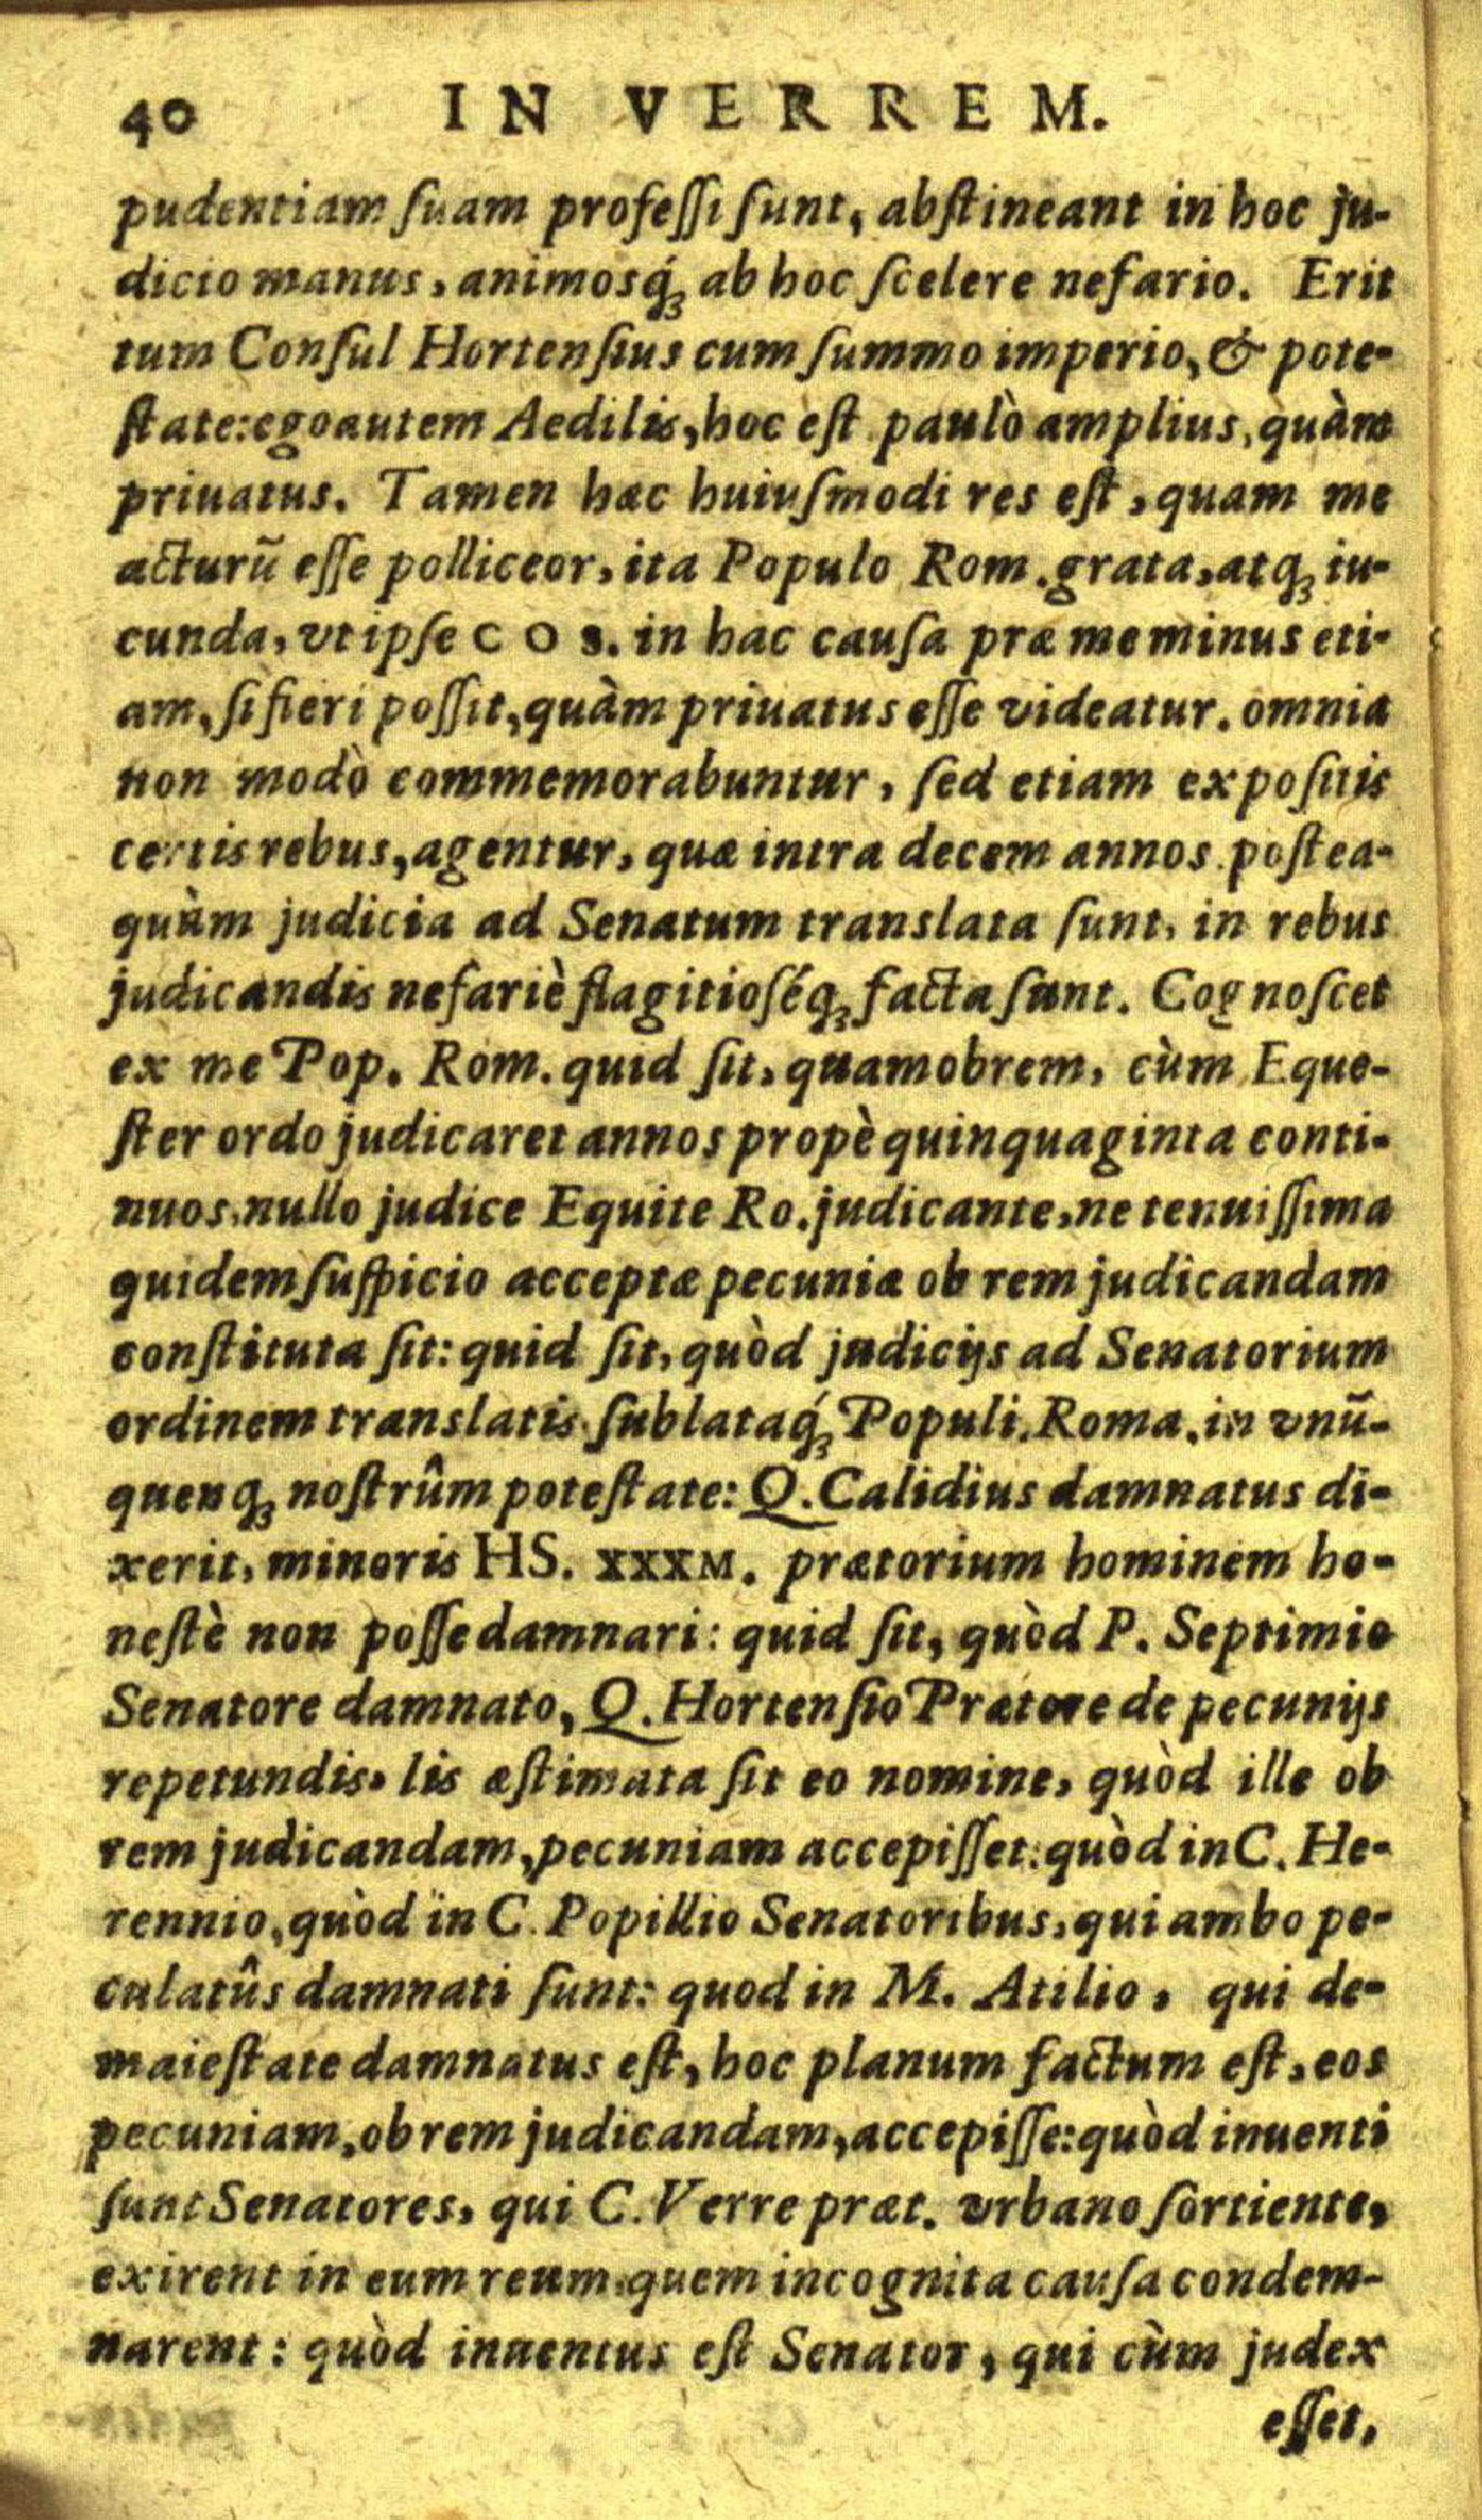 40 IN VERREM.
pudentiam ſuam profeſſi ſunt, abſtineant in hoc ju-
dicio manus, animosq́ꝫ ab hoc ſcelere nefario. Erit
tum Conſul Hortenſius cum ſummo imperio, & pote-
ſtate: ego autem Aedilis, hoc eſt paulò amplius, quàm
priuatus. Tamen hæc huiuſmodi res eſt, quam me
acturū eſſe polliceor, ita Populo Rom. grata, atqꝫ iu-
cunda, vt ipſe COS. in hac cauſa præ me minus eti-
am, ſi fieri poſſit, quàm priuatus eſſe videatur. omnia
non modò commemorabuntur, ſed etiam expoſitis
certis rebus, agentur, quæ intra decem annos poſtea-
quàm judicia ad Senatum translata ſunt, in rebus
judicandis nefariè flagitioſéqꝫ facta ſunt. Cognoſcet
ex me Pop. Rom. quid ſit, quamobrem, cùm Eque-
ſter ordo judicaret annos propè quinquaginta conti-
nuos, nullo judice Equite Ro. judicante, ne tenuiſſima
quidem ſuſpicio acceptæ pecuniæ ob rem judicandam
conſtituta ſit: quid ſit, quòd judicijs ad Senatorium
ordinem translatis ſublataq́ꝫ Populi. Roma. in vnū-
quenqꝫ noſtrûm poteſtate: Q. Calidius damnatus di-
xerit, minoris HS. XXXM. prætorium hominem ho-
neſtè non poſſe damnari: quid ſit, quòd P. Septimio
Senatore damnato, Q. Hortenſio Prætore de pecunijs
repetundis, lis æſtimata ſit eo nomine, quòd ille ob
rem judicandam, pecuniam accepiſſet: quòd in C. He-
rennio, quòd in C. Popillio Senatoribus, qui ambo pe-
culatûs damnati ſunt: quod in M. Atilio, qui de-
maieſtate damnatus eſt, hoc planum factum eſt, eos
pecuniam, ob rem judicandam, accepiſſe: quòd inuenti
ſunt Senatores, qui C. Verre præt. vrbano ſortiente,
exirent in eum reum, quem incognita cauſa condem-
narent: quòd inuentus eſt Senator, qui cùm judex
eſſet,